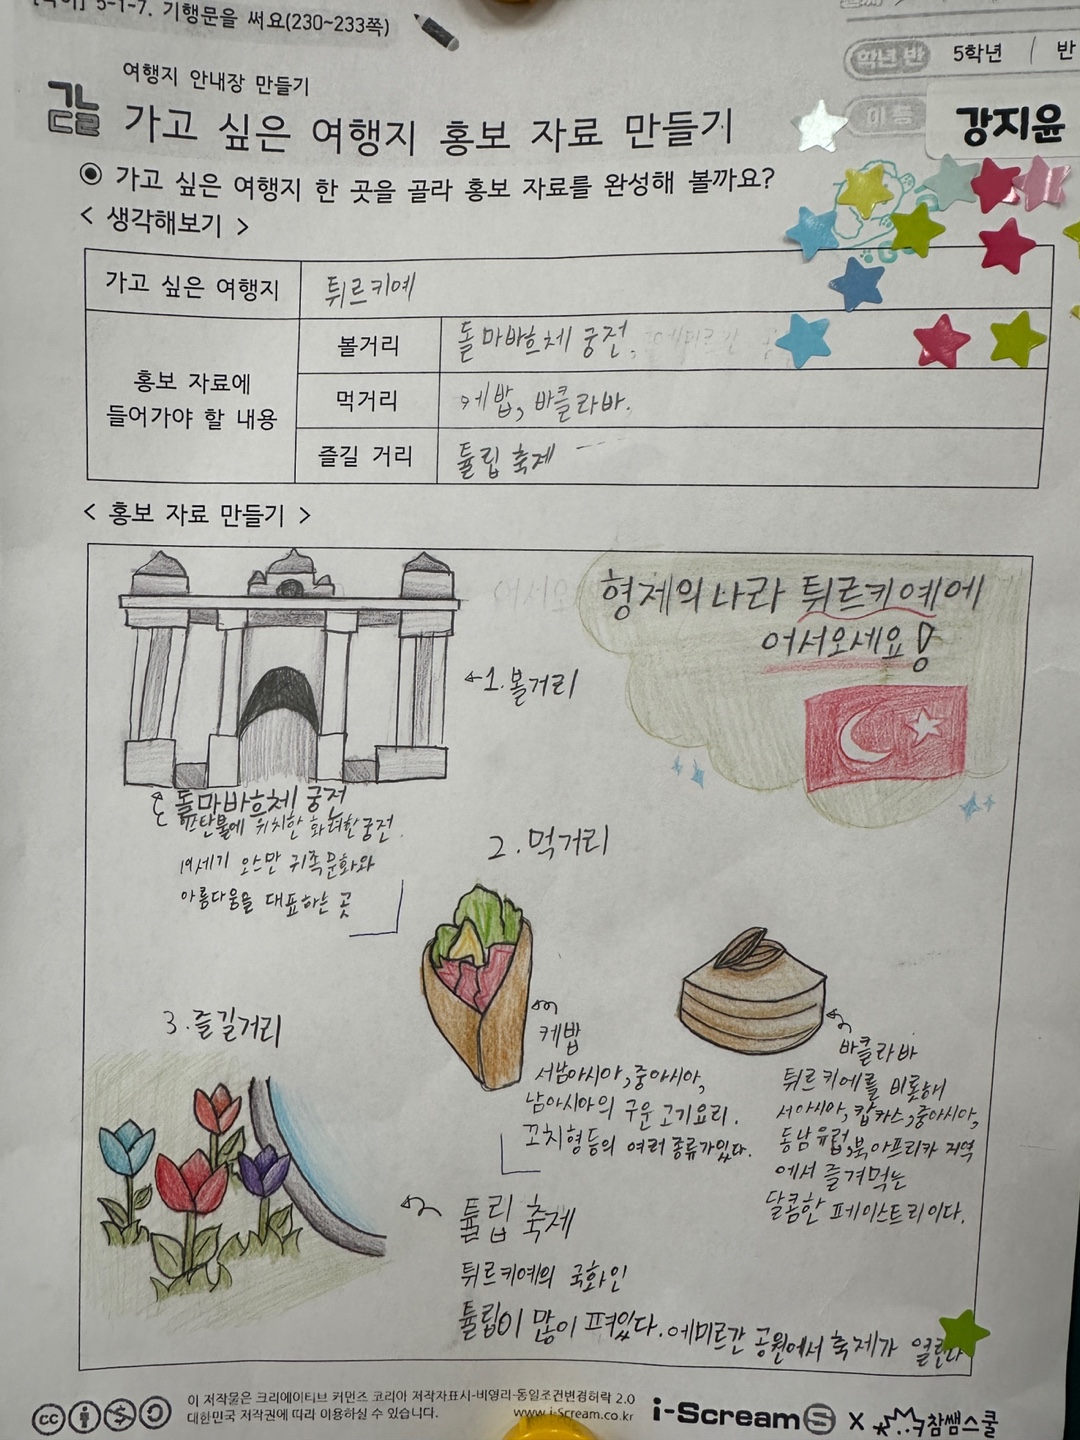 5-1-7. 기행문을 써요(230~233쪽)
학년 반 5학년 / 반
이름 강지윤
여행지 안내장 만들기
가고 싶은 여행지 홍보 자료 만들기
가고 싶은 여행지 한 곳을 골라 홍보 자료를 완성해 볼까요?
< 생각해보기 >
가고 싶은 여행지 튀르키예
홍보 자료에
들어가야 할 내용
볼거리 돌마바흐체 궁전,
먹거리 케밥, 바클라바.
즐길 거리 튤립 축제
< 홍보 자료 만들기 >
형제의 나라 튀르키예에
어서오세요!
1. 볼거리
돌마바흐체 궁전
이스탄불에 위치한 화려한 궁전.
19세기 오스만 귀족문화와
아름다움을 대표하는 곳
2. 먹거리
케밥
서남아시아, 중아시아,
남아시아의 구운 고기요리.
꼬치형등의 여러 종류가있다.
바클라바
튀르키예를 비롯해
서아시아, 캅카스, 중아시아,
동남유럽, 북아프리카 지역
에서 즐겨먹는
달콤한 페이스트리이다.
3. 즐길거리
튤립 축제
튀르키예의 국화인
튤립이 많이 펴있다. 에미르간 공원에서 축제가 열린다
이 저작물은 크리에이티브 커먼즈 코리아 저작자표시-비영리-동일조건변경허락 2.0
대한민국 저작권에 따라 이용하실 수 있습니다. www.i-Scream.co.kr
i-Scream S X 참쌤스쿨